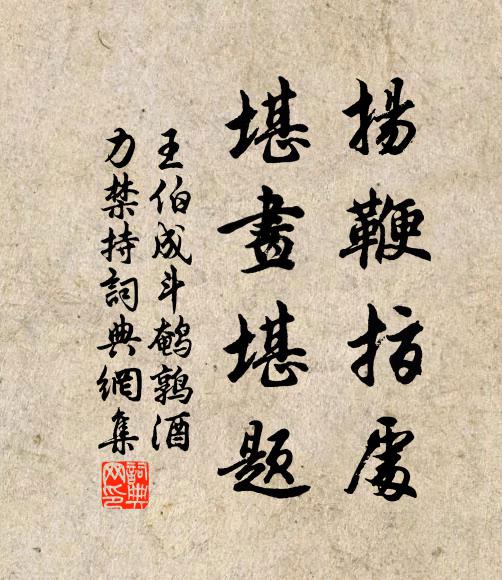 揚鞭指處
堪畫堪題
王伯成斗鵪鶉酒
力禁持詞典網集
詞典網印